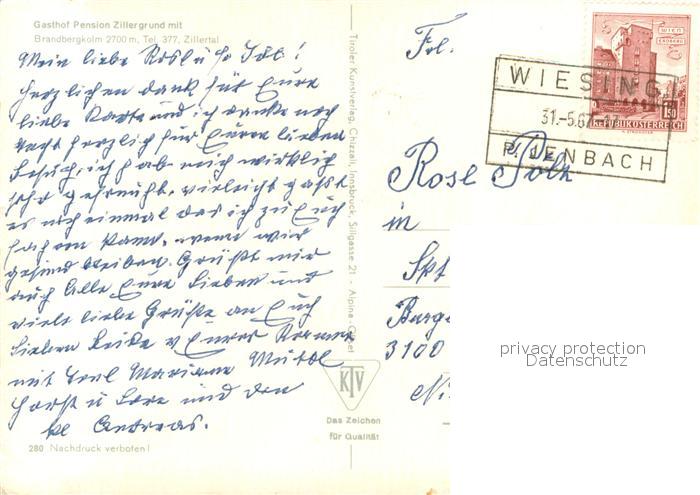 Gasthof Pension Zillergrund mit
Brandbergkolm 2700 m, Tel. 377, Zillertal
Mein liebe Rosl u
herzlichen Dank für Eure
liebe Karte und ich danke noch
recht herzlich für Euren lieben
Besuch, ich hab mich wirklich
sehr gefreuht, vieleicht gehts
es noch einmal das ich zu Euch
kann, wenn wir
gesund bleiben. Grüßt mir
auch Alle Eure Lieben und
viele liebe Grüße an Euch
lieben Beide v Eurer
mit Mariane
Horst u Lore und den
Andreas.
280 Nachdruck verboten!
Tiroler Kunstverlag, Chizzali, Innsbruck, Sillgasse 21 - Alpina-Offset
KTV
Das Zeichen
für Qualität
Frl.
Rose Polz
in
Skt
3100
WIESING
31.-5.67-17
P. JENBACH
WIEN
ERDBERG
1.50
REPUBLIK ÖSTERREICH
privacy protection
Datenschutz